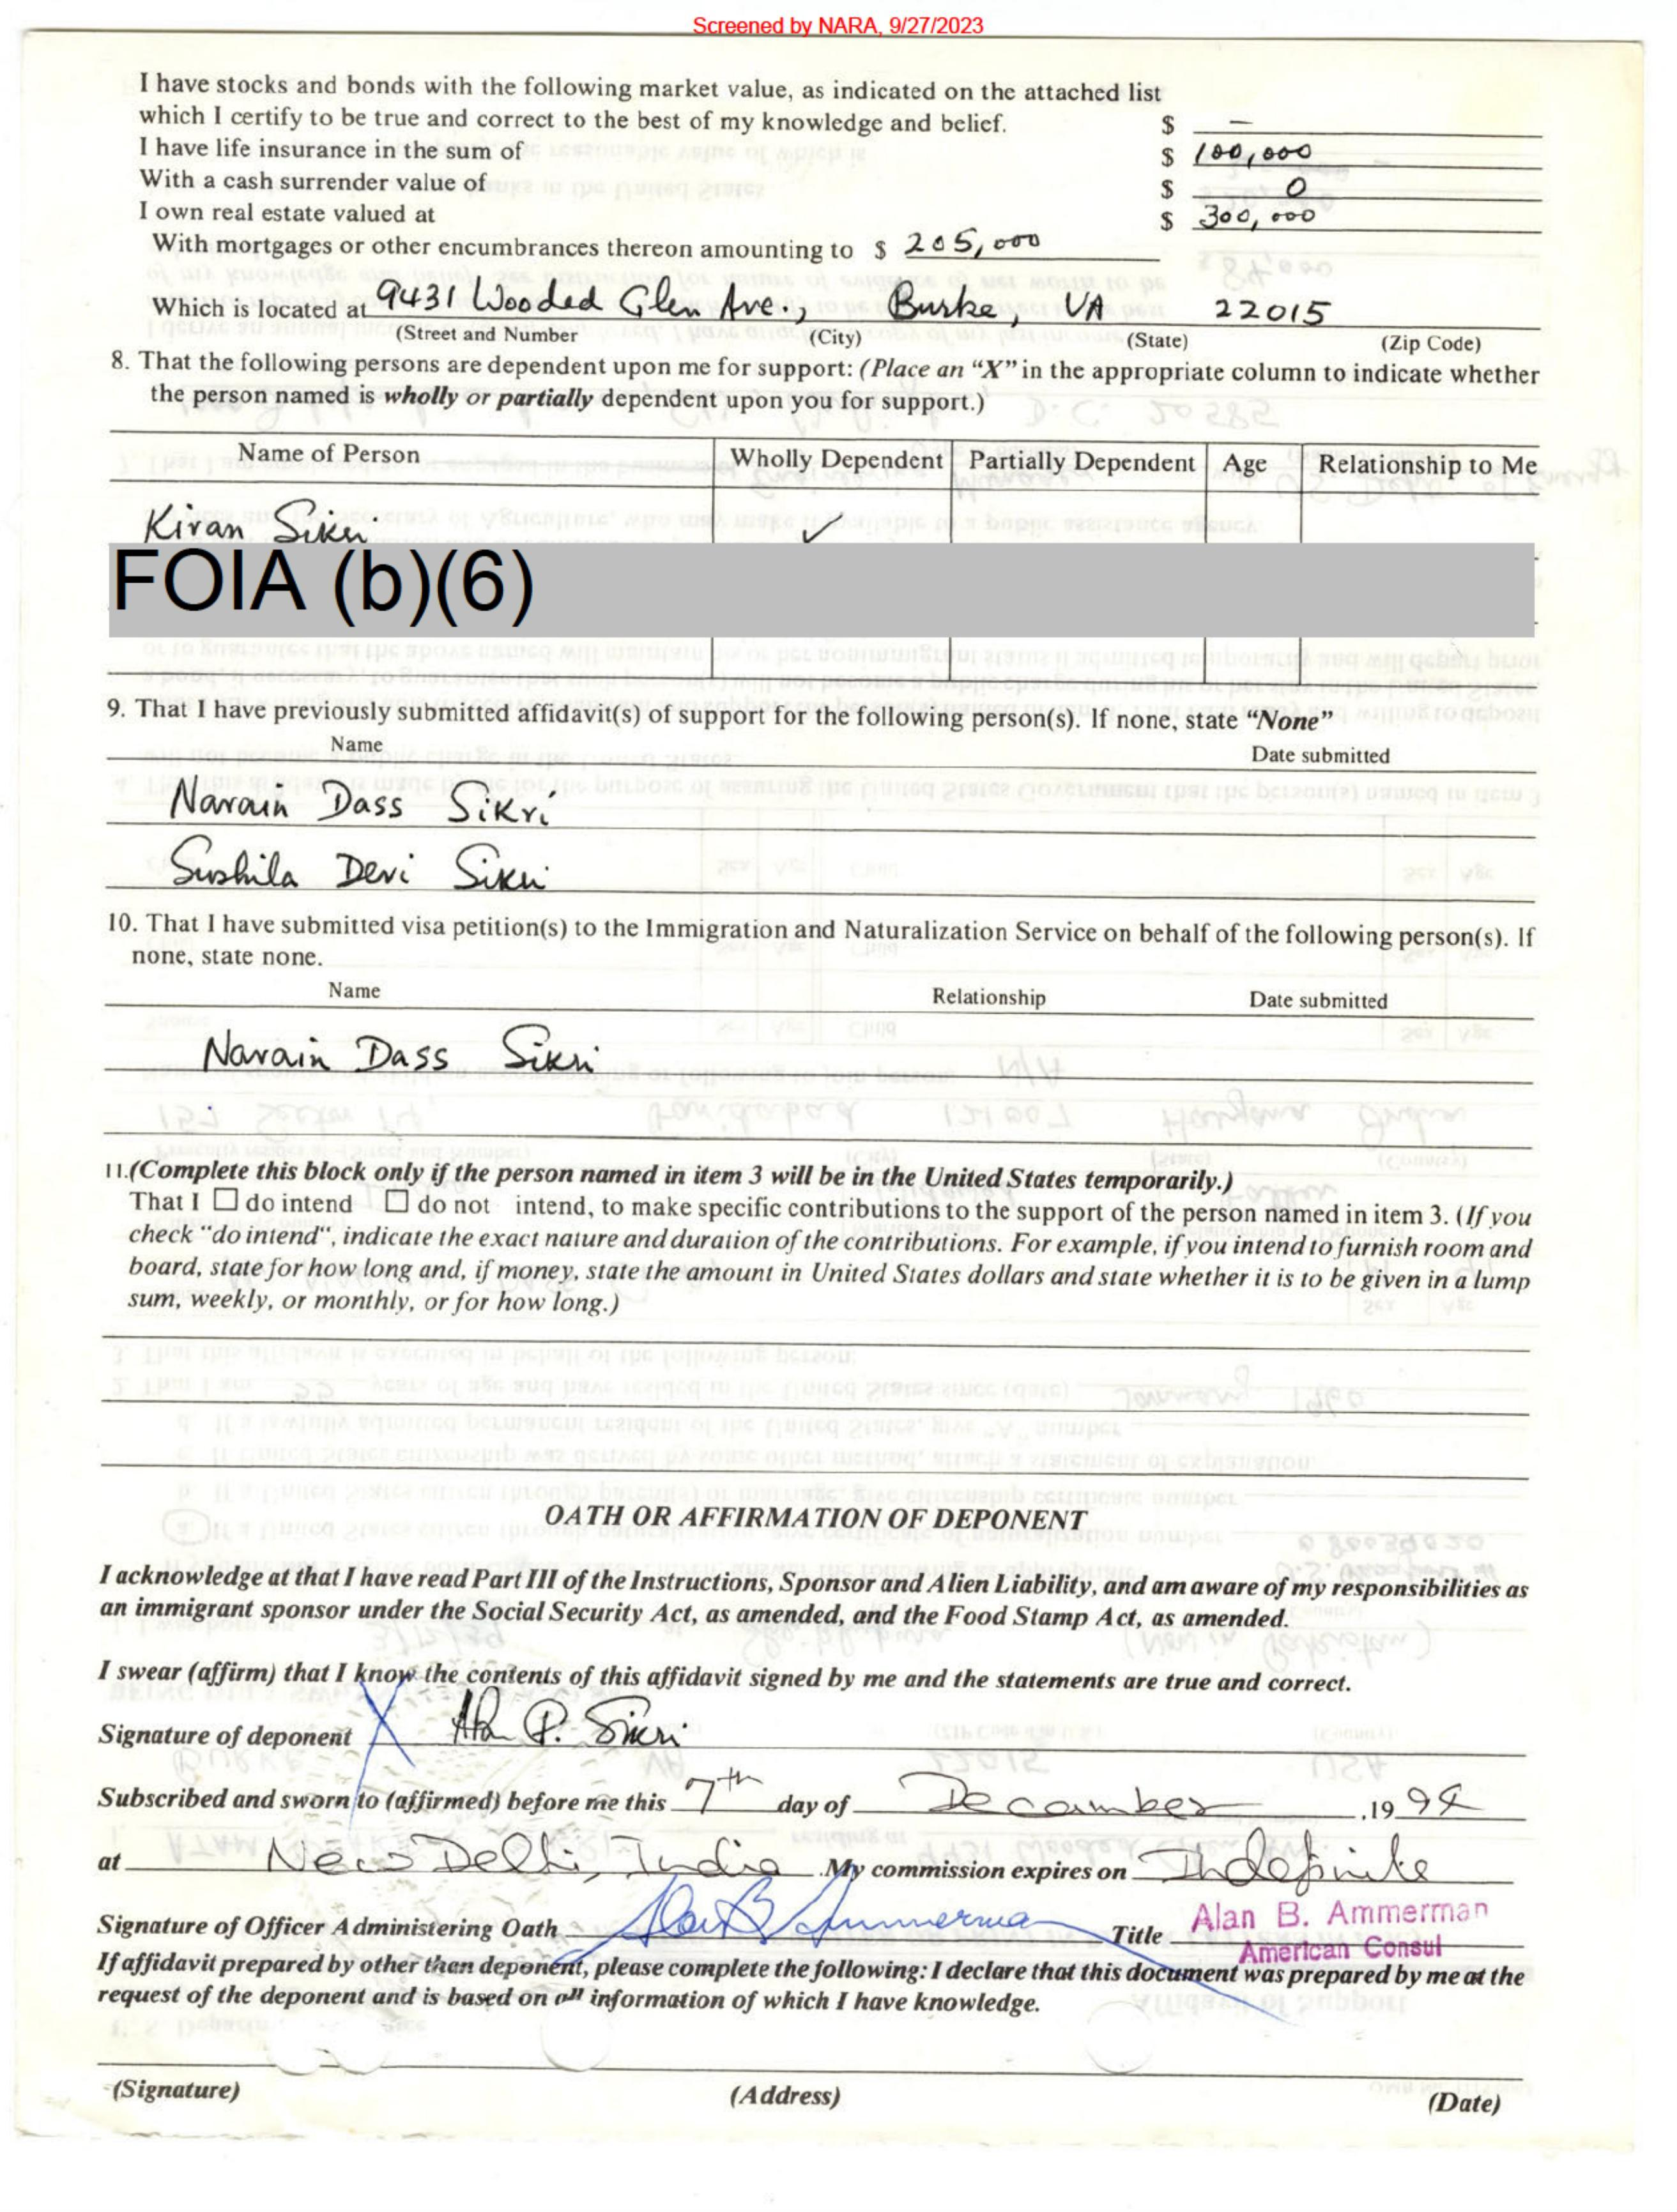 Screened by NARA, 9/27/2023
I have stocks and bonds with the following market value, as indicated on the attached list
which I certify to be true and correct to the best of my knowledge and belief. $ —
I have life insurance in the sum of $ 100,000
With a cash surrender value of $ 0
I own real estate valued at $ 300,000
With mortgages or other encumbrances thereon amounting to $ 205,000
Which is located at 9431 Wooded Glen Ave., Burke, VA 22015
(Street and Number (City) (State) (Zip Code)
8. That the following persons are dependent upon me for support: (Place an “X” in the appropriate column to indicate whether
the person named is wholly or partially dependent upon you for support.)
Name of Person Wholly Dependent Partially Dependent Age Relationship to Me
Kiran Sikri ✓
FOIA (b)(6)
9. That I have previously submitted affidavit(s) of support for the following person(s). If none, state “None”
Name Date submitted
Narain Dass Sikri
Sushila Devi Sikri
10. That I have submitted visa petition(s) to the Immigration and Naturalization Service on behalf of the following person(s). If
none, state none.
Name Relationship Date submitted
Narain Dass Sikri
11.(Complete this block only if the person named in item 3 will be in the United States temporarily.)
That I ☐ do intend ☐ do not intend, to make specific contributions to the support of the person named in item 3. (If you
check "do intend", indicate the exact nature and duration of the contributions. For example, if you intend to furnish room and
board, state for how long and, if money, state the amount in United States dollars and state whether it is to be given in a lump
sum, weekly, or monthly, or for how long.)
OATH OR AFFIRMATION OF DEPONENT
I acknowledge at that I have read Part III of the Instructions, Sponsor and Alien Liability, and am aware of my responsibilities as
an immigrant sponsor under the Social Security Act, as amended, and the Food Stamp Act, as amended.
I swear (affirm) that I know the contents of this affidavit signed by me and the statements are true and correct.
Signature of deponent X P. Sikri
Subscribed and sworn to (affirmed) before me this 7th day of December ,19 94
at New Delhi, India .My commission expires on Indefinite
Signature of Officer Administering Oath Alan B Ammerman Title Alan B. Ammerman
American Consul
If affidavit prepared by other than deponent, please complete the following: I declare that this document was prepared by me at the
request of the deponent and is based on all information of which I have knowledge.
(Signature) (Address) (Date)